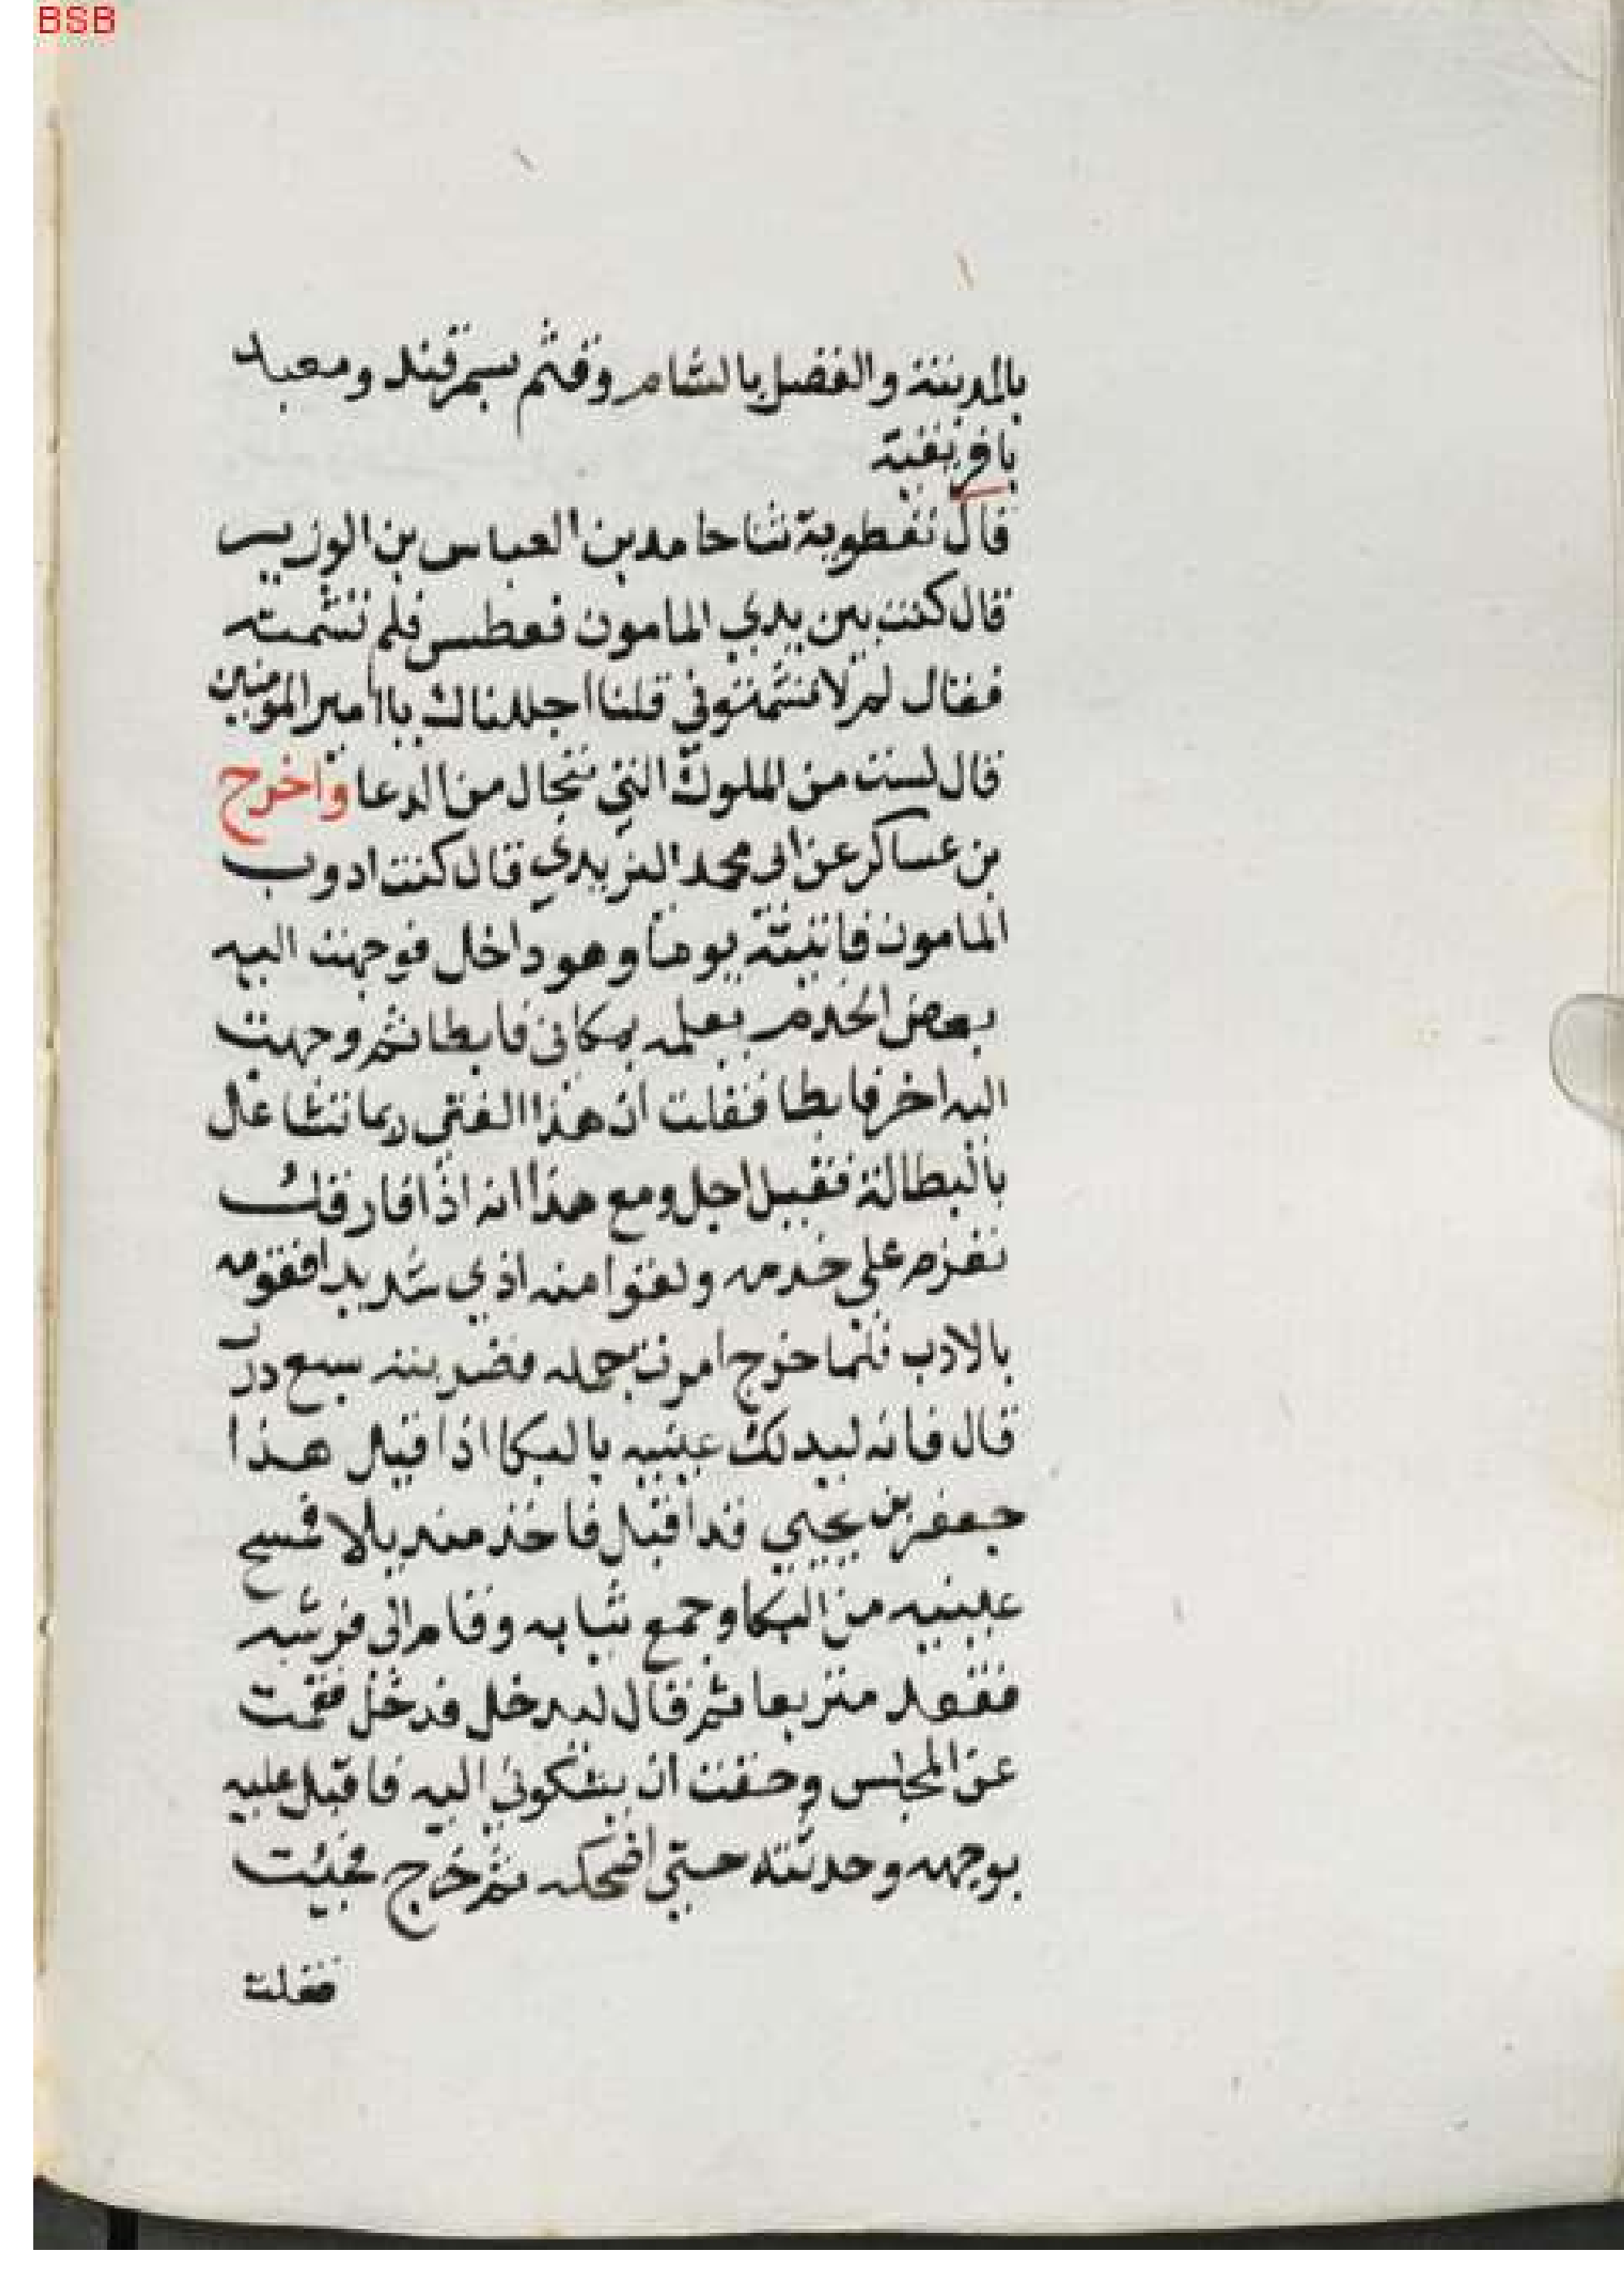 BSB
بالمدينة والفضل بالشام وقثم بسمرقند ومعبد
بافريقية
قال نفطوية ثنا حامد بن العباس بن الوزير
قال كنت بين يدي المامون فعطس فلم نشمته
فقال لم لا تشمتوني قلنا اجللناك يا امير المومنين
قال لست من الملوك التي تتجال من الدعا واخرج
بن عساكر عن ابي محمد اليزيدي قال كنت ادوب
المامون فاتيته يوما وهو داخل فوجهت اليه
بعض الخدم يعلمه بمكاني فابطا ثم وجهت
اليه اخر فابطا فقلت ان هذا الفتي ربما تشاغل
بالبطالة فقيل اجل ومع هذا انه اذا فارقك
تغرم علي خدمه ولقوا منه اذي شديدا فقومه
بالادب فلما خرج امرت بحمله فضربته سبع درر
قال فانه ليدلك عينيه بالبكا اذا قيل هذا
جعفر بن يحيي قد اقبل فاخذ منديلا فمسح
عينيه من البكا وجمع ثيابه وقام الى فرشه
فقعد متربعا ثم قال ليدخل فدخل فقمت
عن المجلس وخفت ان يشكوني اليه فاقبل عليه
بوجهه وحدثته حتي اضحكه ثم خرج فجيت
فقلت